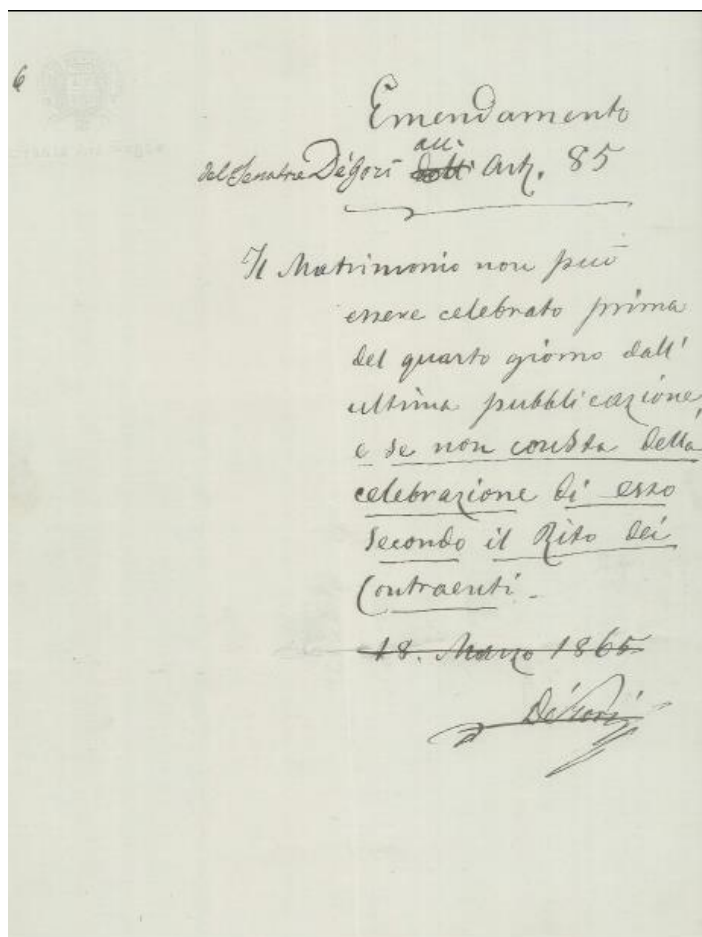 6
Emendamento
all'
del Senatore De'Gori Art. 85
Il Matrimonio non può
essere celebrato prima
del quarto giorno dall'
ultima pubblicazione,
e se non consta della
celebrazione di esso
secondo il Rito dei
Contraenti.
18. Marzo 1865
De'Gori